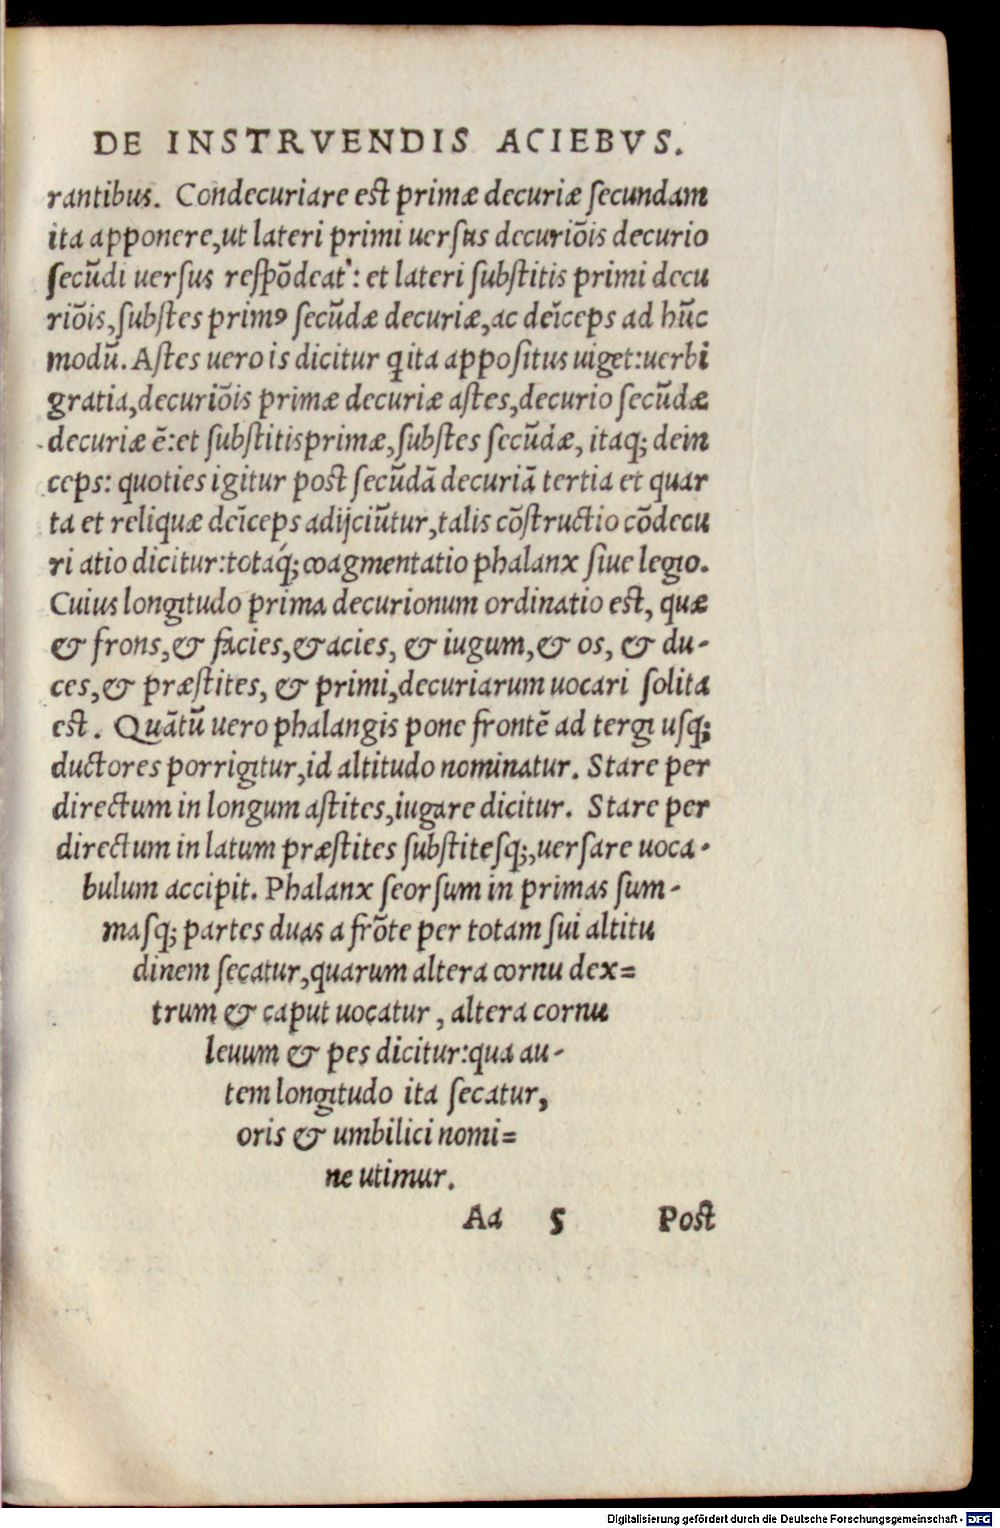 DE INSTRVENDIS ACIEBVS.
rantibus. Condecuriare est primæ decuriæ ſecundam
ita apponere,ut lateri primi uerſus decuriõis decurio
ſecũdi uerſus reſpõdeat': et lateri ſubſtitis primi decu
riõis,ſubſtes primꝰ ſecũdæ decuriæ,ac deĩceps ad hũc
modũ. Aſtes uero is dicitur q ita appoſitus uiget:uerbi
gratia,decuriõis primæ decuriæ aſtes,decurio ſecũdæ
decuriæ ẽ:et ſubſtitis primæ,ſubſtes ſecũdæ, itaq; dein
ceps: quoties igitur poſt ſecũdã decuriã tertia et quar
ta et reliquæ deĩceps adijciũtur,talis cõſtructio cõdecu
ri atio dicitur:totaq́; coagmentatio phalanx ſiue legio.
Cuius longitudo prima decurionum ordinatio eſt, quæ
& frons,& facies,& acies, & iugum,& os, & du-
ces,& præſtites, & primi,decuriarum uocari ſolita
eſt. Quãtũ uero phalangis pone frontẽ ad tergi uſq;
ductores porrigitur,id altitudo nominatur. Stare per
directum in longum aſtites,iugare dicitur. Stare per
directum in latum præſtites ſubſtiteſq;,uerſare uoca-
bulum accipit. Phalanx ſeorſum in primas ſum-
maſq; partes duas a frõte per totam ſui altitu
dinem ſecatur,quarum altera cornu dex=
trum & caput uocatur, altera cornu
leuum & pes dicitur:qua au-
tem longitudo ita ſecatur,
oris & umbilici nomi=
ne utimur.
Aa 5 Poſt
Digitalisierung gefördert durch die Deutsche Forschungsgemeinschaft - DFG